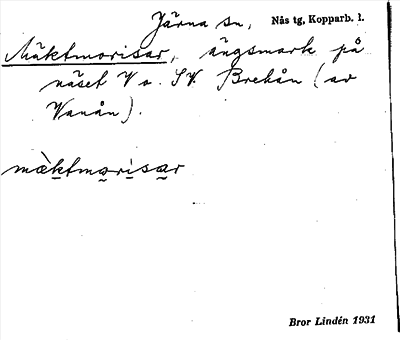 Järna sn, Nås tg, Kopparb. l.
Mäktmorisar, ängsmark på
näset V o. SV. Brekån (av
Vanån).
mæ̀ktmorisar
Bror Lindén 1931